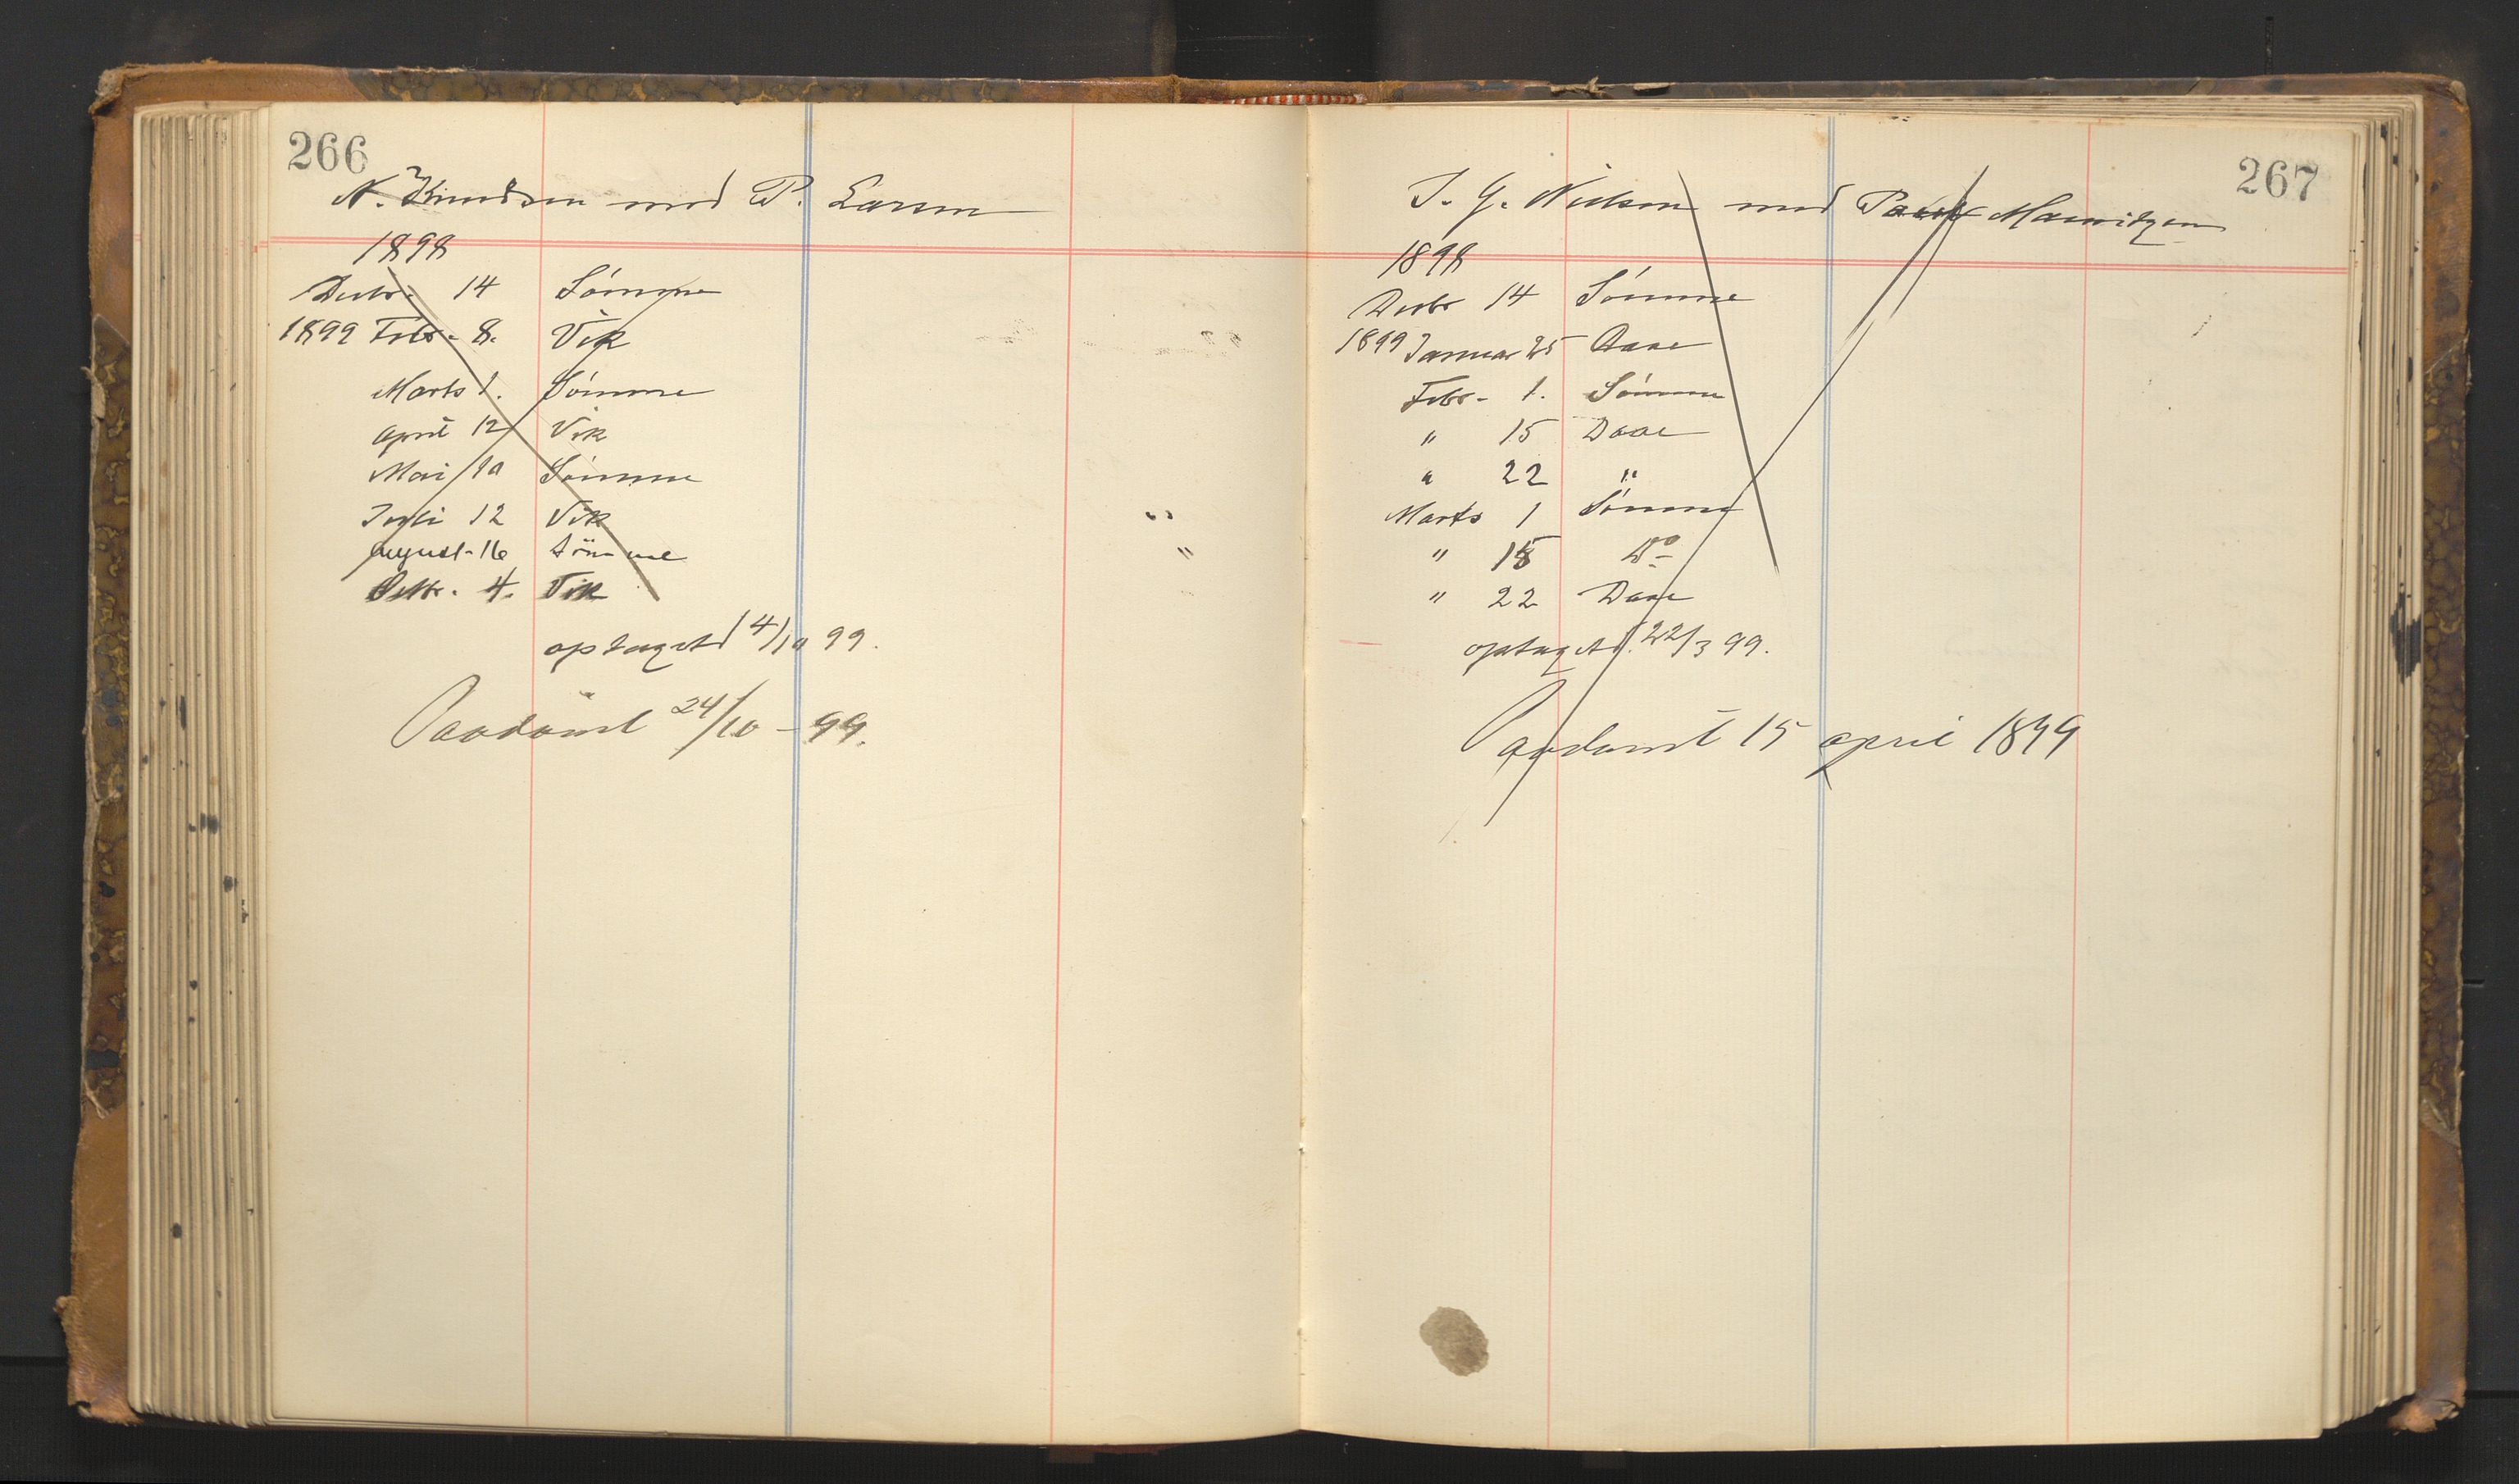 266
N. Knudsen mod P. Larsen
1898
Decbr. 14 Sömme
1899 Febr. 8. Vik
Marts 1. Sömme
April 12 Vik
Mai 10 Sömme
Juli 12 Vik
August 16 Sömme
Octbr. 4. Vik
optaget d 4/10 99.
Paadömt 24/10 - 99.
267
J. G. Nielsen mod Paul Mauritzen
1898
Decbr 14 Sömme
1899 Januar 25 Daae
Febr. 1. Sömme
" 15 Daae
" 22 "
Marts 1 Sömme
" 15 Do
" 22 Daae
optaget d. 22/3 99.
Paadömt 15 april 1899